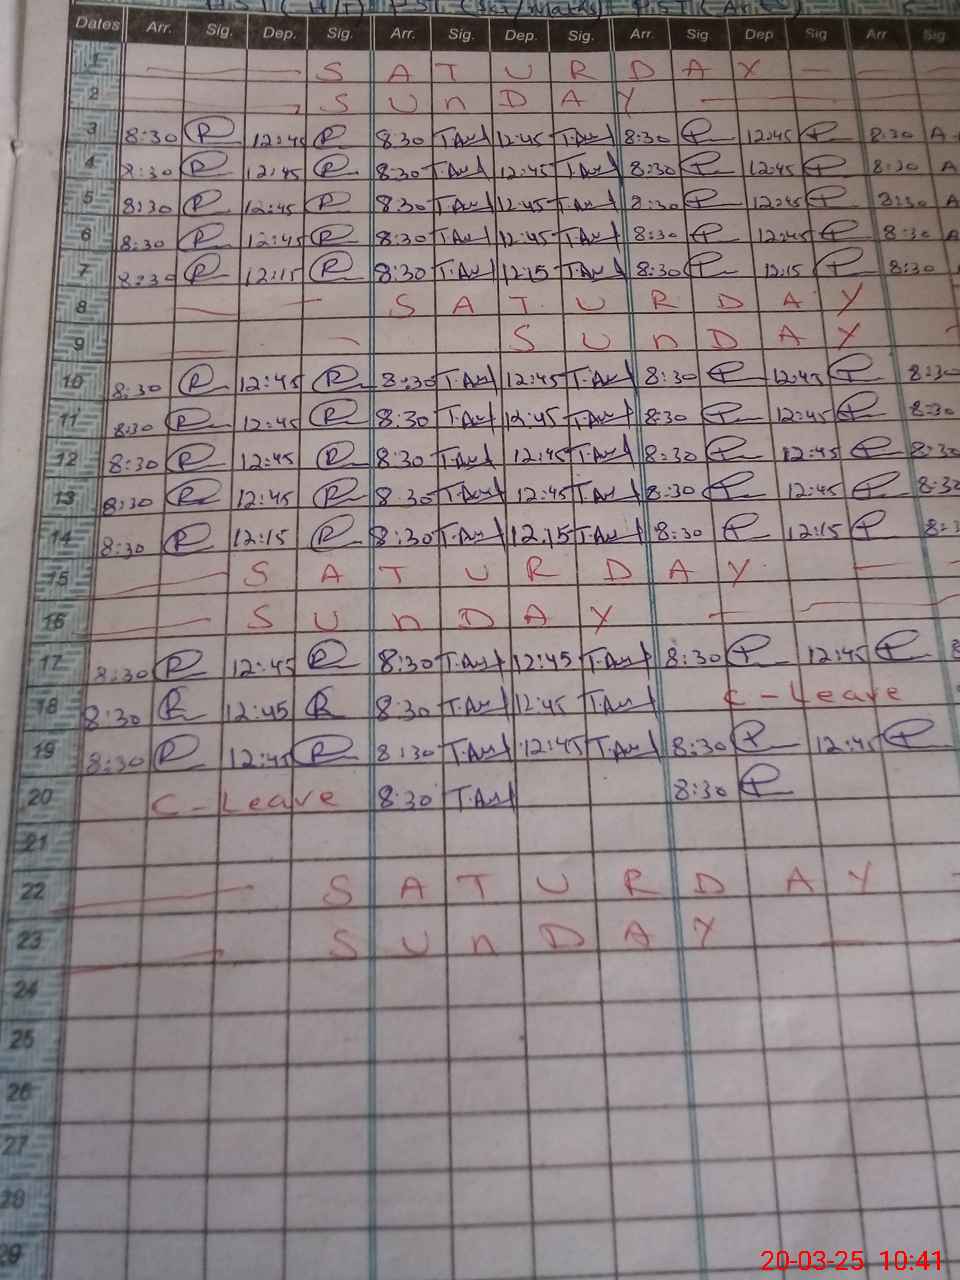 Dates Arr. Sig. Dep. Sig. Arr. Sig. Dep. Sig. Arr. Sig Dep Sig Arr Sig.
1 SATURDAY
2 SUnDAY
3 8:30 R 12:45 R 8:30 12:45 8:30 12:45 8:30 A
4 8:30 R 12:45 R 8:30 12:45 8:30 12:45 8:30 A
5 8:30 R 12:45 R 8:30 12:45 8:30 12:45 8:30 A
6 8:30 R 12:45 R 8:30 12:45 8:30 12:45 8:30 A
7 8:30 R 12:15 R 8:30 12:15 8:30 12:15 8:30
8 SATURDAY
9 SUnDAY
10 8:30 R 12:45 R 8:30 12:45 8:30 12:45 8:30
11 8:30 R 12:45 R 8:30 12:45 8:30 12:45 8:30
12 8:30 R 12:45 R 8:30 12:45 8:30 12:45 8:30
13 8:30 R 12:45 R 8:30 12:45 8:30 12:45 8:30
14 8:30 R 12:15 R 8:30 12:15 8:30 12:15
15 SATURDAY
16 SUnDAY
17 8:30 R 12:45 R 8:30 12:45 8:30 12:45
18 8:30 R 12:45 R 8:30 12:45 C-Leave
19 8:30 R 12:45 R 8:30 12:45 8:30 12:45
20 C-Leave 8:30 8:30
21
22 SATURDAY
23 SUnDAY
24
25
26
27
28
29
20-03-25 10:41